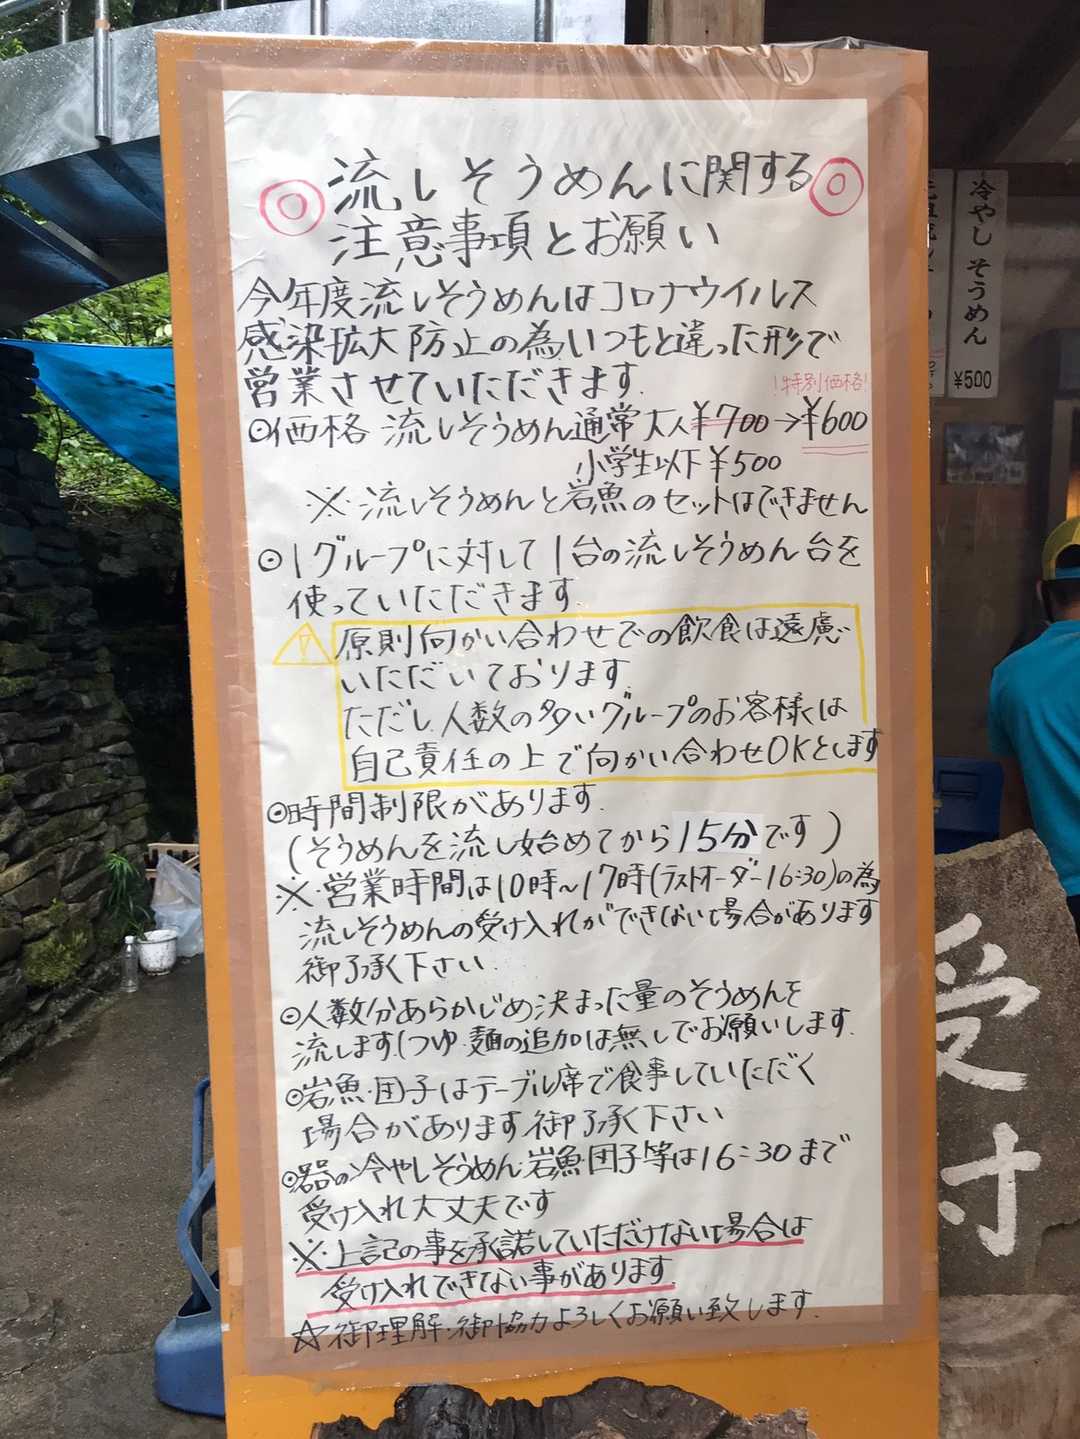 ◎流しそうめんに関する◎
注意事項とお願い
今年度流しそうめんはコロナウイルス
感染拡大防止の為いつもと違った形で
営業させていただきます.
!特別価格!
⊙価格 流しそうめん通常大人¥700→¥600
小学生以下¥500
※流しそうめんと岩魚のセットはできません
⊙1グループに対して1台の流しそうめん台を
使っていただきます.
原則向かい合わせでの飲食は遠慮
いただいております.
ただし.人数の多いグループのお客様は
自己責任の上で向かい合わせOKとします
⊙時間制限があります.
(そうめんを流し始めてから15分です)
※営業時間は10時~17時(ラストオーダー16:30)の為
流しそうめんの受け入れができない場合があります
御了承く下さい.
⊙人数分あらかじめ決まった量のそうめんを
流します.(つゆ.麺の追加は無しでお願いします.
⊙岩魚・団子はテーブル席で食事していただく
場合があります.御了承く下さい
⊙器の冷やしそうめん.岩魚.団子等は16:30まで
受け入れ大丈夫です
※上記の事を承諾していただけない場合は
受け入れできない事があります.
☆御理解.御協力よろしくお願い致します.
冷やしそうめん
¥500
受
付